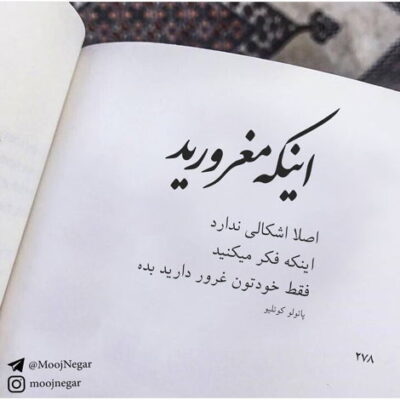 اینکه مغرورید
اصلا اشکالی ندارد
اینکه فکر میکنید
فقط خودتون غرور دارید بده
پائولو کوئلیو
۲۷۸
@MoojNegar
moojnegar